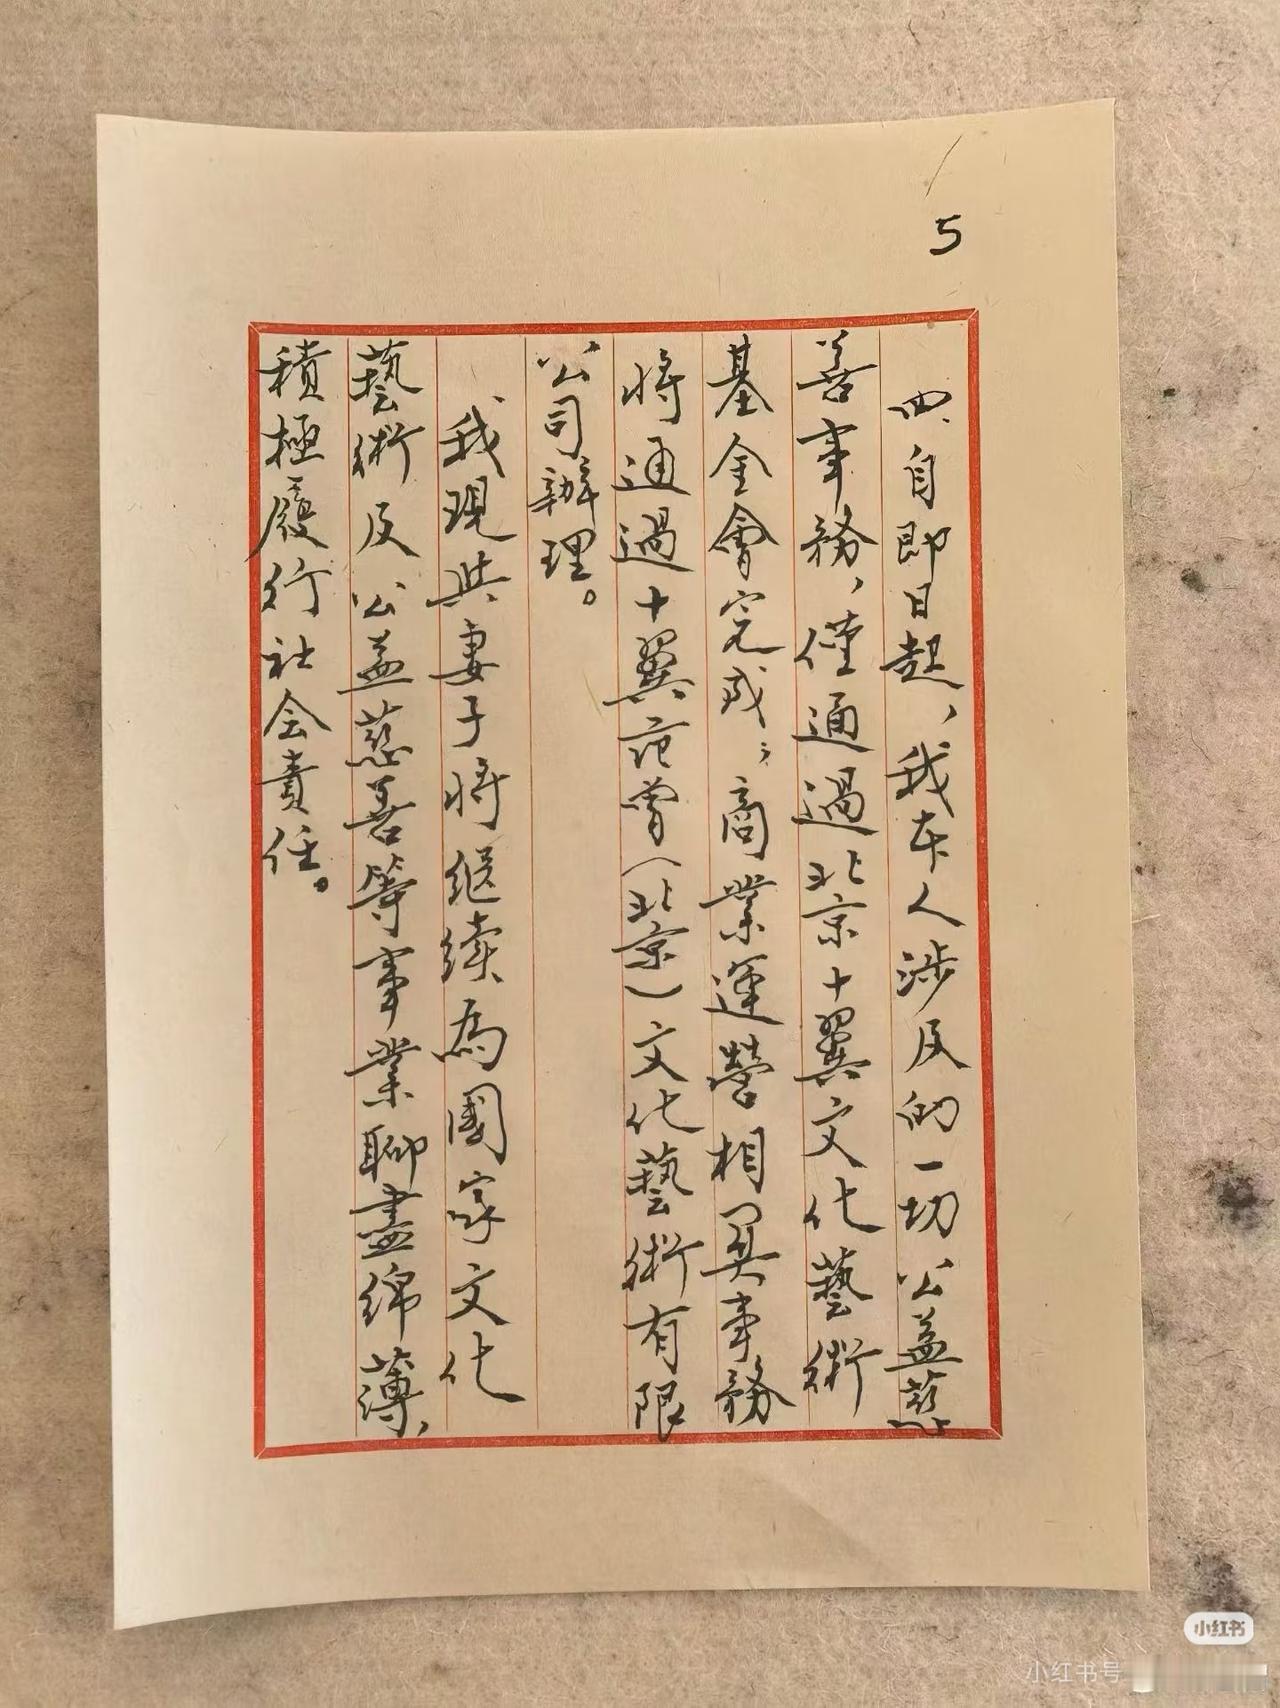 5
四、自即日起，我本人涉及的一切公益慈
善事務，僅通過北京十翼文化藝術
基金會完成；商業運營相關事務
将通過十翼范曾（北京）文化藝術有限
公司辦理。
我現與妻子将继续為國家文化
藝術及公益慈善等事業聊盡绵薄，
積極履行社会責任。
小红书
小红书号